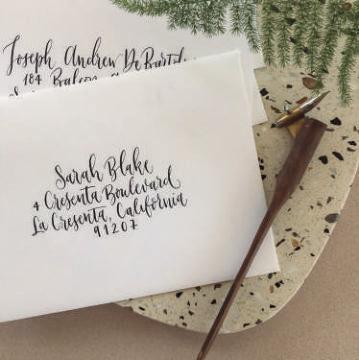 Joseph Andrew De Bartol
184
Sarah Blake
4 Cresenta Boulevard
La Cresenta, California
91207